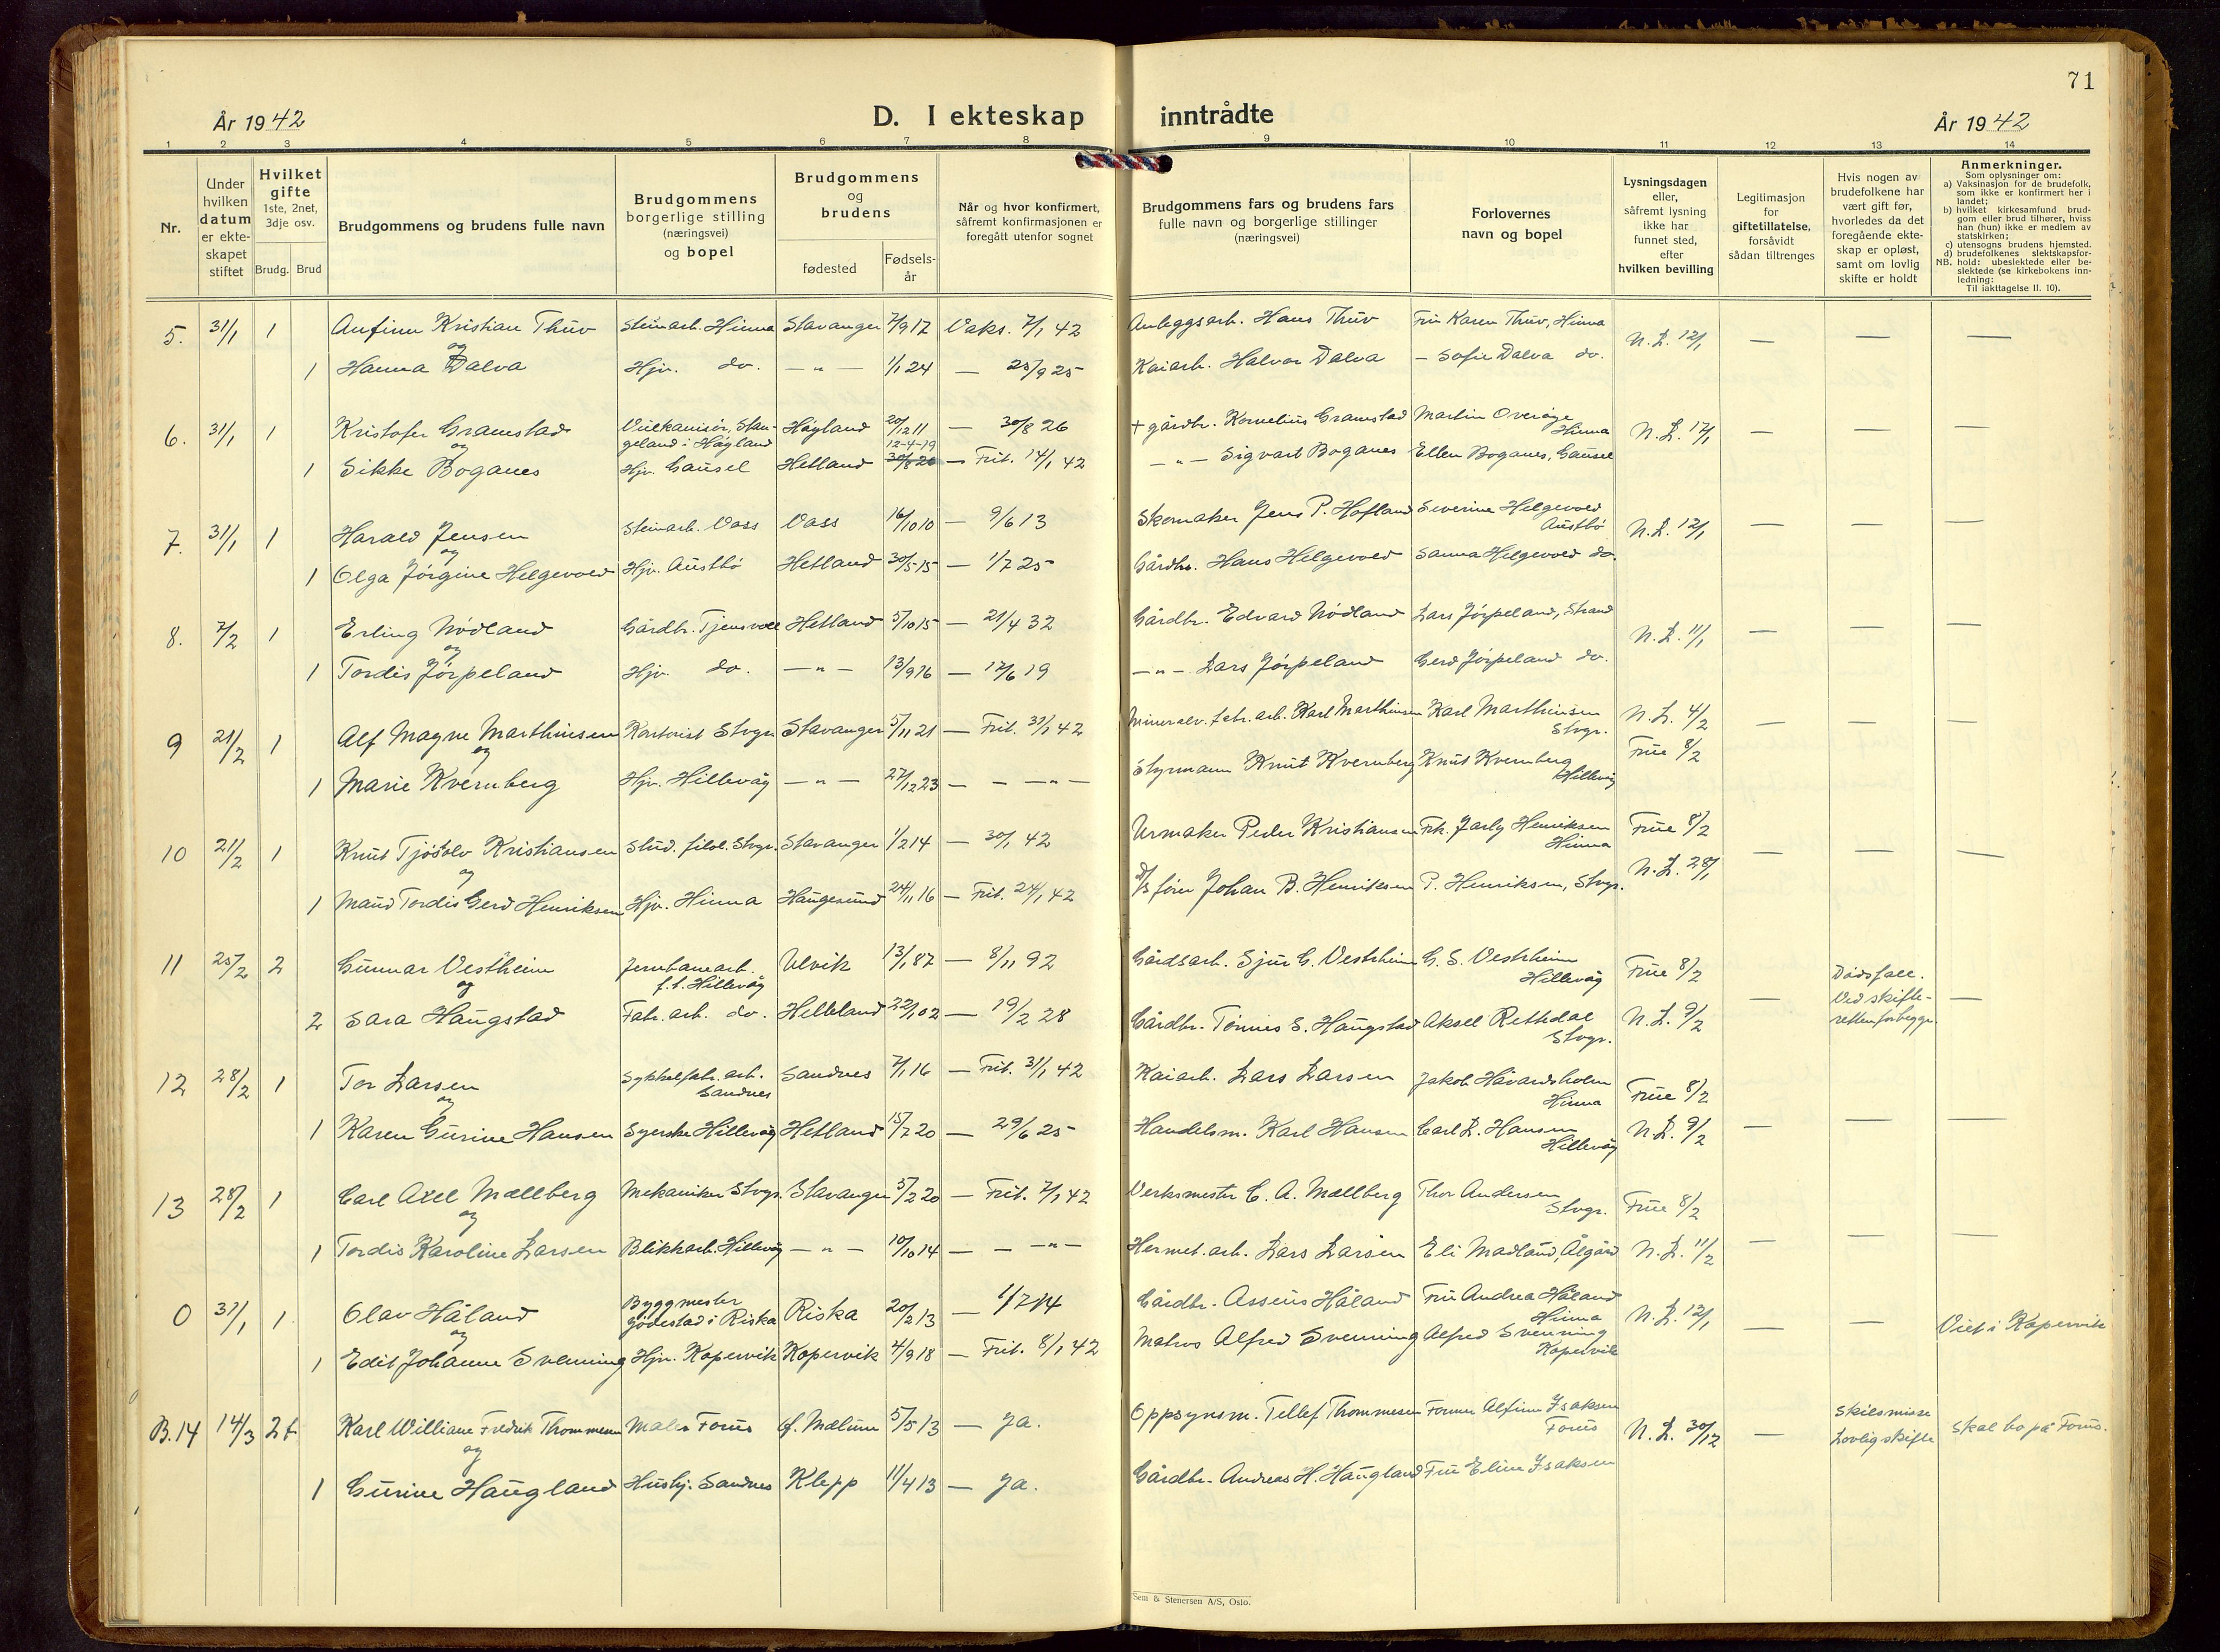 71
År 1942 D. I ekteskap inntrådte År 1942
1 2 3 4 5 6 7 8 9 10 11 12 13 14
Nr.
Under hvilken datum er ekteskapet stiftet
Hvilket gifte 1ste, 2net, 3dje osv.
Brudg. Brud
Brudgommens og brudens fulle navn
Brudgommens borgerlige stilling (næringsvei) og bopel
Brudgommens og brudens
fødested
Fødselsår
Når og hvor konfirmert, såfremt konfirmasjonen er foregått utenfor sognet
Brudgommens fars og brudens fars fulle navn og borgerlige stillinger (næringsvei)
Forlovernes navn og bopel
Lysningsdagen eller, såfremt lysning ikke har funnet sted, efter hvilken bevilling
Legitimasjon for giftetillatelse, forsåvidt sådan tiltrenges
Hvis nogen av brudefolkene har vært gift før, hvorledes da det foregående ekteskap er opløst, samt om lovlig skifte er holdt
Anmerkninger.
Som oplysninger om:
a) Vaksinasjon for de brudefolk, som ikke er konfirmert her i landet;
b) hvilket kirkesamfund brudgom eller brud tilhører, hviss han (hun) ikke er medlem av statskirken;
c) utensogns brudens hjemsted.
d) brudefolkenes slektskapsforhold: ubeslektede eller beslektede (se kirkebokens innledning:
NB.
Til iakttagelse II. 10).
5. 31/1 1 Anfinn Kristian Thuv Steinarb. Hinna Stavanger 7/9 17 Vaks. 7/1 42 Anleggsarb. Hans Thuv Fru Karen Thuv, Hinna N.L. 12/1 — — —
og
1 Hanna Dalva Hjv. do. — " — 1/1 24 — 25/9 25 Kaiarb. Halvor Dalva — Sofie Dalva do.
6. 31/1 1 Kristofer Gramstad Vulkanisør, Stangeland i Høyland Høyland 20/12 11 — 30/8 26 + gårdbr. Kornelius Gramstad Martin Overøye Hinna N.L. 17/1 — — —
og 12-4-19
1 Sikke Boganes Hjv. Gausel Hetland 30/8 20 — Frit. 14/1 42 — " — Sigvart Boganes Ellen Boganes, Gausel
7. 31/1 1 Harald Jensen Steinarb. Voss Voss 16/10 10 — 9/6 13 Skomaker Jens P. Hafland Severine Helgevold Austbø N.L. 12/1 — — —
og
1 Olga Jørgine Helgevold Hjv. Austbø Hetland 30/5 15 — 1/7 25 Gårdbr. Hans Helgevold Sanna Helgevold do.
8. 7/2 1 Erling Nødland Gårdbr. Tjensvoll Hetland 5/10 15 — 21/4 32 Gårdbr. Edvard Nødland Lars Jørpeland, Strand N.L. 11/1 — — —
og
1 Tordis Jørpeland Hjv. do. — " — 13/9 16 — 17/6 19 — " — Lars Jørpeland Gerd Jørpeland do.
9 21/2 1 Alf Magne Marthinsen Kontorist Stvgr. Stavanger 5/11 21 — Frit. 31/1 42 Mineralv. fabr. arb. Karl Marthinsen Karl Marthinsen Stvgr. N.L. 4/2 — — —
og Frue 8/2
1 Marie Kvernberg Hjv. Hillevåg — " — 27/12 23 — — " — Styrmann Knut Kvernberg Knut Kvernberg Hillevåg
10 21/2 1 Knut Tjøsolv Kristiansen Stud. filol. Stvgr. Stavanger 1/2 14 — 30/1 42 Urmaker Peder Kristiansen Frk. Jarly Henriksen Hinna Frue 8/2 — — —
og
1 Maud Tordis Gerd Henriksen Hjv. Hinna Haugesund 24/11 16 — Frit. 24/1 42 D/S fører Johan B. Henriksen P. Henriksen, Stvgr. N.L. 28/1
11 25/2 2 Gunnar Vestheim Jernbanearb. f.t. Hillevåg Ulvik 13/1 87 — 8/11 92 Gårdsarb. Sjur G. Vestrheim G. S. Vestrheim Hillevåg Frue 8/2 — Dødsfall. Ved skifteretten for begge. —
og
2 Sara Haugstad Fabr. arb. do. Helleland 22/1 02 — 19/2 28 Gårdbr. Tønnes S. Haugstad Aksel Rettedal Stvgr. N.L. 9/2
12 28/2 1 Tor Larsen Sykkelfabr. arb. Sandnes Sandnes 7/1 16 — Frit. 31/1 42 Kaiarb. Lars Larsen Jakob Håvardsholm Hinna Frue 8/2 — — —
og
1 Karen Gurine Hansen Syerske Hillevåg Hetland 15/7 20 — 29/6 25 Handelsm. Karl Hansen Carl L. Hansen Hillevåg N.L. 9/2
13 28/2 1 Carl Axel Mællberg Mekaniker Stvgr. Stavanger 5/2 20 — Frit. 7/1 42 Verksmester C. A. Mællberg Thor Andersen Stvgr. Frue 8/2 — — —
og
1 Tordis Karoline Larsen Blikkarb. Hillevåg — " — 10/10 14 — — " — Hermet. arb. Lars Larsen Eli Madland, Ålgård N.L. 11/2
0 31/1 1 Olav Håland Byggmester Jødestad i Riska Riska 20/2 13 — 1/7 14 Gårdbr. Assens Håland Fru Andrea Håland Hinna N.L. 12/1 — — Viet i Kopervik
og
1 Edit Johanne Svenning Hjv. Kopervik Kopervik 4/9 18 — Frit. 8/1 42 Matros Alfred Svenning Alfred Svenning Kopervik
B.14 14/3 2 f Karl William Fredrik Thommesen Maler Forus G. Mælum 5/5 13 — Ja. Oppsynsm. Tellef Thommesen Former Alfinn Isaksen Forus N.L. 30/12 — Skilsmisse Lovlig skifte Skal bo på Forus.
og
1 Gurine Haugland Hushj. Sandnes Klepp 11/4 13 — Ja. Gårdbr. Andreas H. Haugland Fru Eline Isaksen
Sem & Stenersen A/S, Oslo.